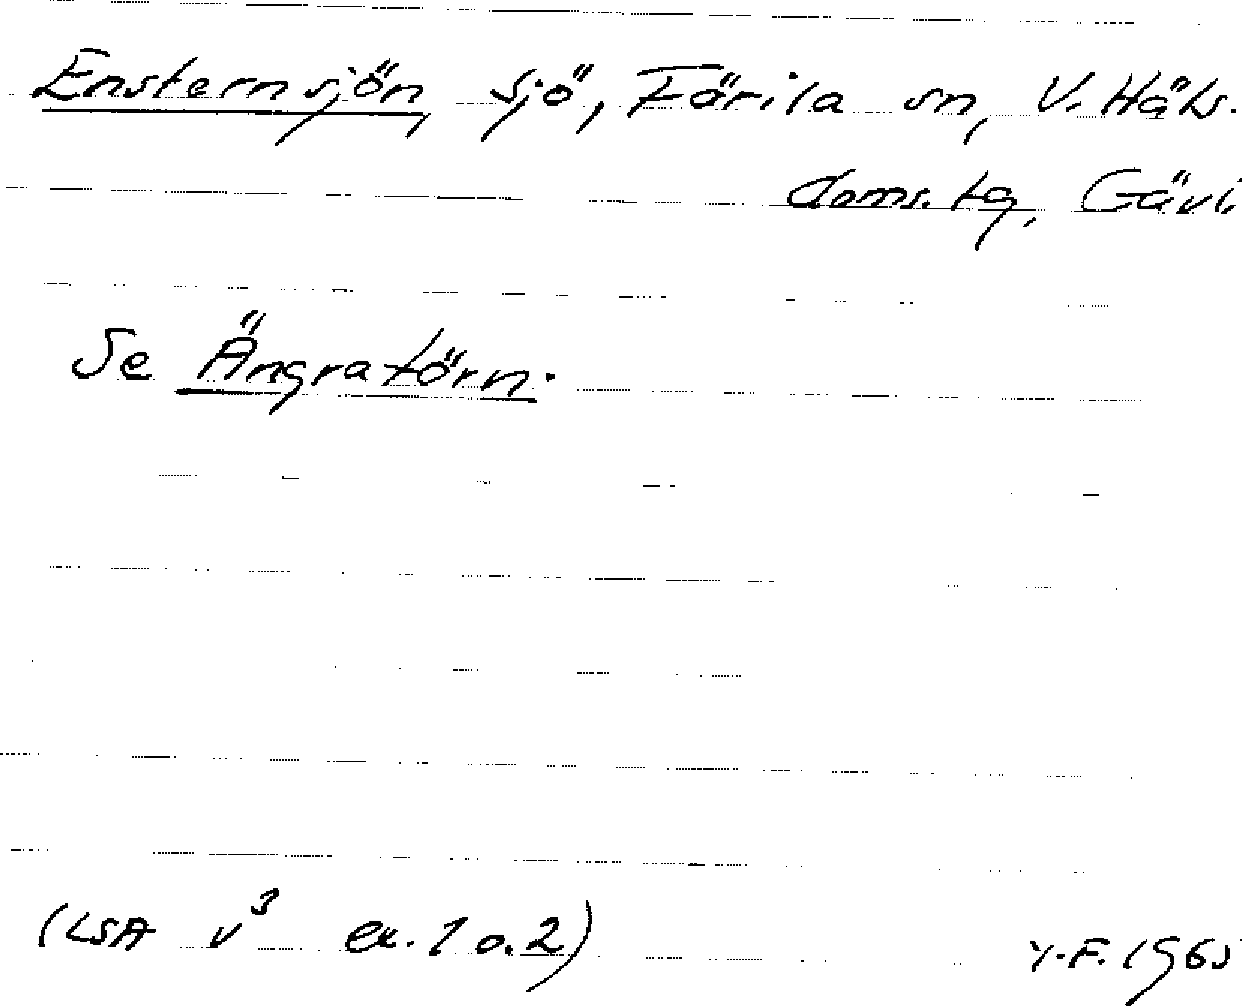 Ensternsjön, sjö, Färila sn, V. Häls.
doms.tg, Gävl.
Se Ängratörn.
(LSA v³ ex. 1 o. 2) Y.F. 1965